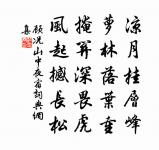 涼月挂層峰
蘿林落葉重
掩深畏虎
風起撼長松
顧況山中夜宿詞典網